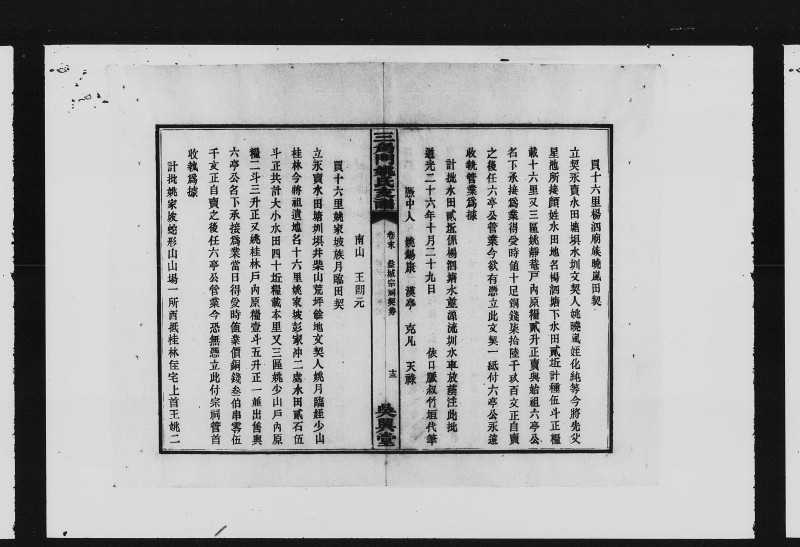 買十六里楊泗廟族曉嵐田契
立契永賣水田塘垻水圳文契人姚曉嵐姪化純等今將先父
星池所接顏姓水田地名楊泗塘下水田貳坵計種伍斗正糧
載十六里又三區姚靜菴戶內原糧貳升正賣與始祖六亭公
名下承接為業得受時値十足銅錢柒拾陸千玖百文正自賣
之後任六亭公管業今欲有憑立此文契一紙付六亭公永遠
收執管業為據
計批水田貳坵係楊泗塘水蔭源流圳水車放蔭注此批
道光二十六年十月二十九日 依口脈叔竹垣代筆
憑中人 姚錫康 漢亭 克凡 天祿
三角門姚氏支譜
卷末 益城宗祠契券
十三
吳興堂
南山 王明元
買十六里姚家坡族月臨田契
立永賣水田塘圳垻井柴山荒坪餘地文契人姚月臨姪少山
桂林今將祖遺地名十六里姚家坡彭家沖二處水田貳石伍
斗正共計大小水田四十坵糧載本里又三區姚少山戶內原
糧二斗三升正又姚桂林戶內原糧壹斗五升正一並出售與
六亭公名下承接為業當日得受時值業價銅錢叁伯串零伍
千文正自賣之後任六亭公管業今恐無憑立此付宗祠管首
收執為據
計批姚家坡蛇形山山場一所西抵桂林住宅上首王姚二